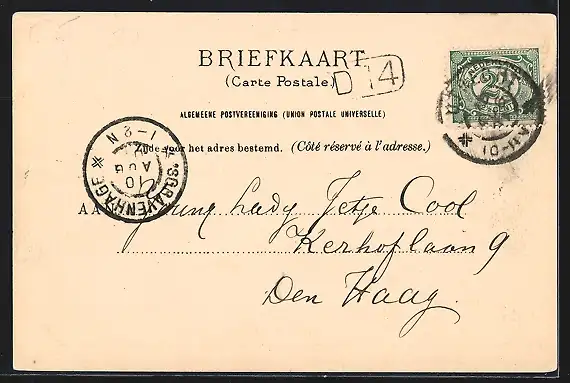 BRIEFKAART
(Carte Postale.)
D 14
ALGEMEENE POSTVEREENIGING (UNION POSTALE UNIVERSELLE)
Zijde voor het adres bestemd. (Côté réservé à l'adresse.)
1-2 N
10
AUG
'SGRAVENHAGE
NEDERLAND
2½
CENT
AAN Young Lady Jetje Cool
Kerhoflaan 9
Den Haag.